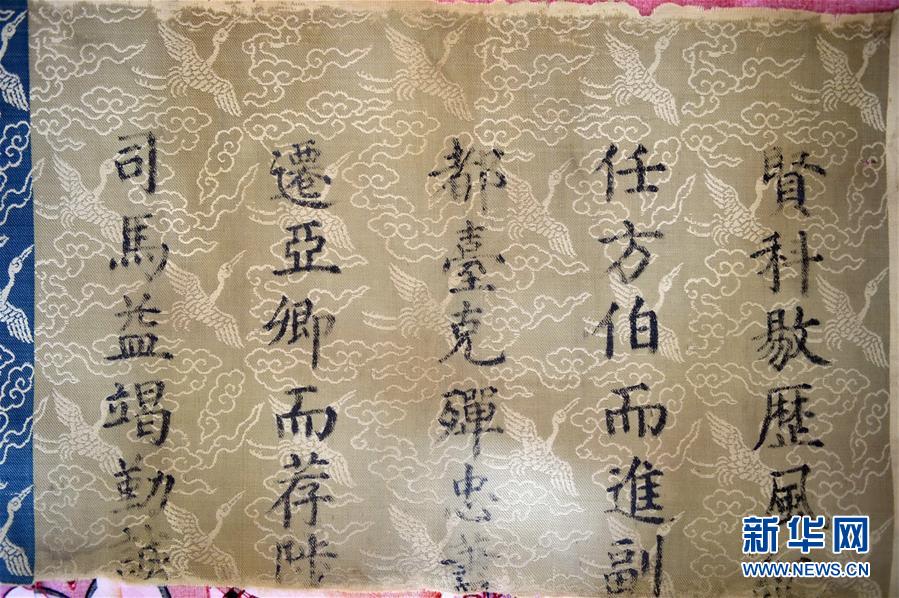 賢科敭歷風
任方伯而進副
都臺克殫忠
遷亞卿而荐陟
司馬益竭勤
新华网
WWW.NEWS.CN